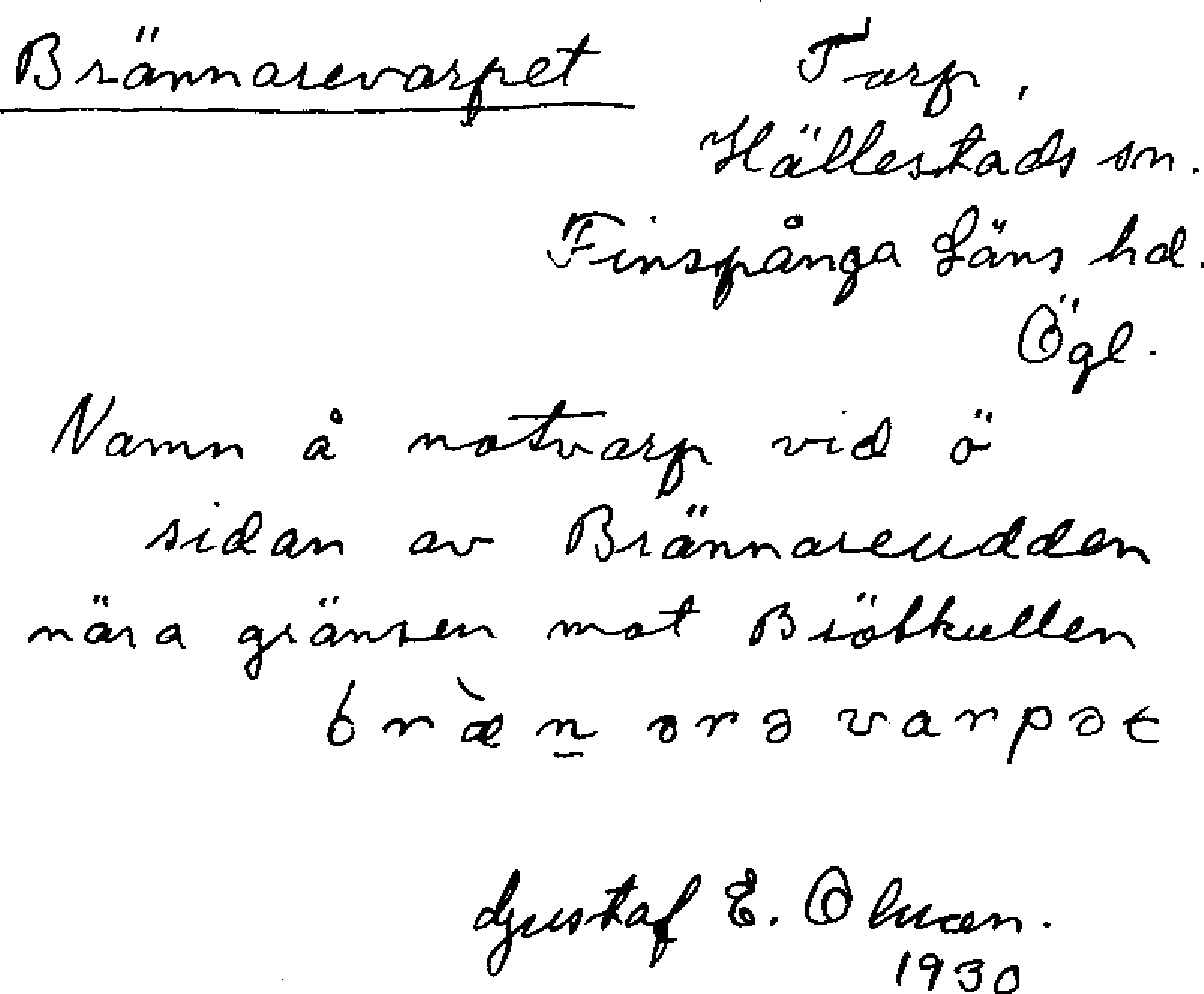 Brännarevarpet Torp,
Hällestads sn.
Finspånga Läns hd.
Ögl.
Namn å notvarp vid ö
sidan av Brännareudden
nära gränsen mot Björkullen
bræ̀n̲ ərə varpət
Gustaf E.
1930